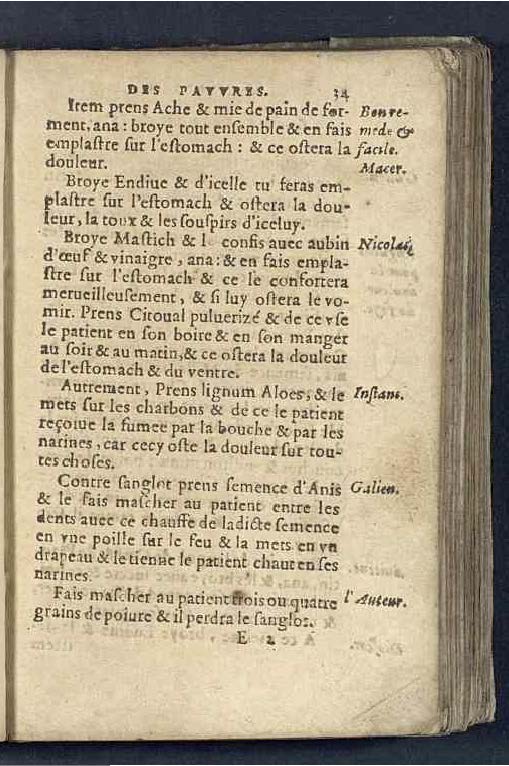 DES PAVVRES. 34
Item prens Ache & mie de pain de for- Bon re-
ment, ana : broye tout ensemble & en fais mede &
emplastre sur l'estomach : & ce ostera la facile.
douleur. Macer.
Broye Endiue & d'icelle tu feras em-
plastre sur l'estomach & ostera la dou-
leur, la toux & les souspirs d'iceluy.
Broye Mastich & l confis auec aubin Nicolaꝰ
d'œuf & vinaigre, ana: & en fais empla-
stre sur l'estomach & ce le confortera
merueilleusement, & si luy ostera le vo-
mir. Prens Citoual puluerizé & de ce vse
le patient en son boire & en son manger
au soir & au matin, & ce ostera la douleur
de l'estomach & du ventre.
Autrement, Prens lignum Aloes, & le Instant.
mets sur les charbons & de ce le patient
reçoiue la fumee par la bouche & par les
narines, car cecy oste la douleur sur tou-
tes choses.
Contre sanglot prens semence d'Anis Galien.
& le fais mascher au patient entre les
dents auec ce chauffe de ladicte semence
en vne poille sur le feu & la mets en vn
drapeau & le tienne le patient chaut en ses
narines.
Fais mascher au patient trois ou quatre l'Auteur.
grains de poiure & il perdra le sanglot.
E 2